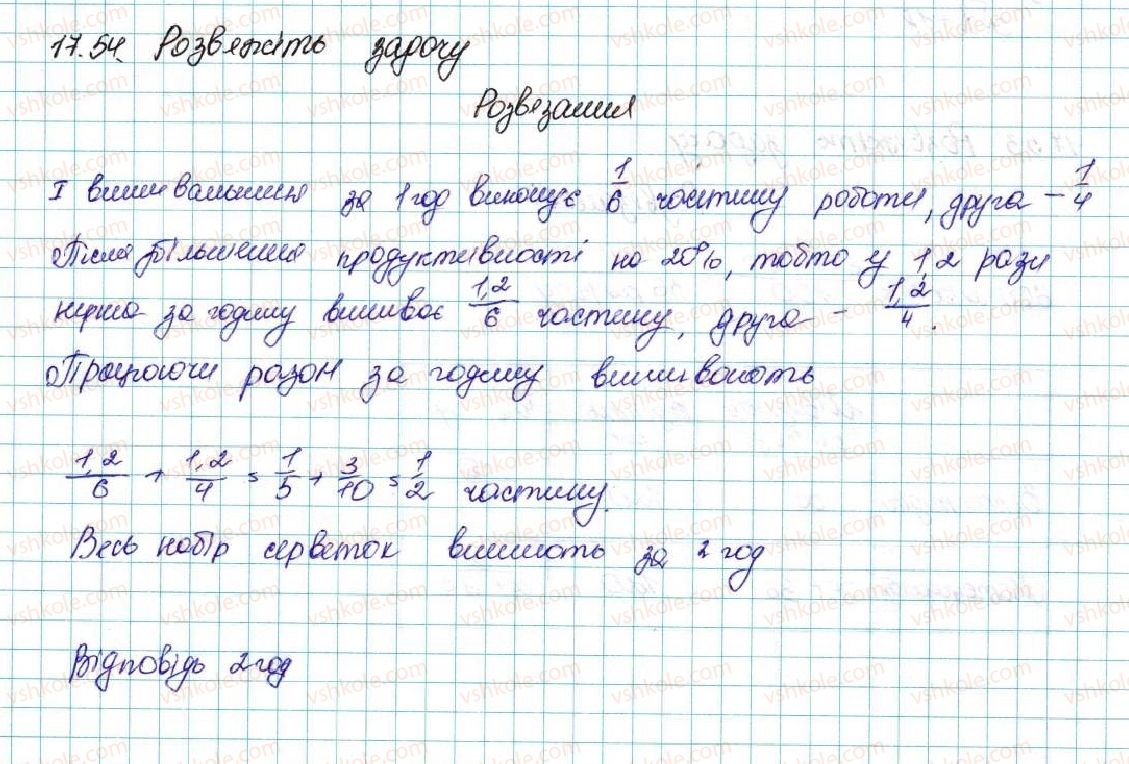 17.54. Розвяжіть задачу
Розвязання
I вишивальниця за 1 год виконує 1/6 частину роботи, друга – 1/4
Після збільшення продуктивності на 20%, тобто у 1,2 рази
перша за годину вишиває 1,2/6 частину, друга - 1,2/4.
Працюючи разом за годину вишивають
1,2/6 + 1,2/4 = 1/5 + 3/10 = 1/2 частину.
Весь набір серветок вишиють за 2 год
Відповідь 2 год